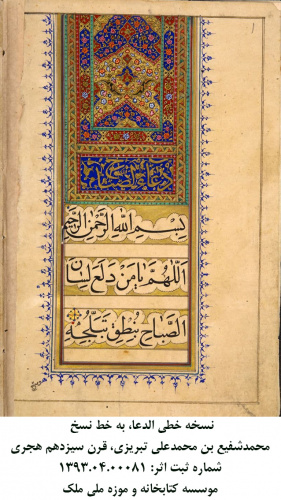 دعاء الصباح
بسم الله الرحمن الرحيم
اللهم يا من دلع لسان
الصباح بنطق تبلجه
نسخه خطی الدعا، به خط نسخ
محمدشفیع بن محمدعلی تبریزی، قرن سیزدهم هجری
شماره ثبت اثر: ۱۳۹۳.۰۴.۰۰۰۸۱
موسسه کتابخانه و موزه ملی ملک